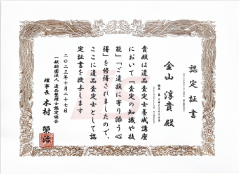 認定証書
金山 淳貴 殿
貴殿は遺品査定士養成講座
において「査定の知識や技
能」「ご遺族に寄り添う心
構」を修得されましたので、
ここに遺品査定士として認
定証書を授与します
二〇二三年十月二十七日
一般社団法人 遺品整理士認定協会
理事長 木村 榮治